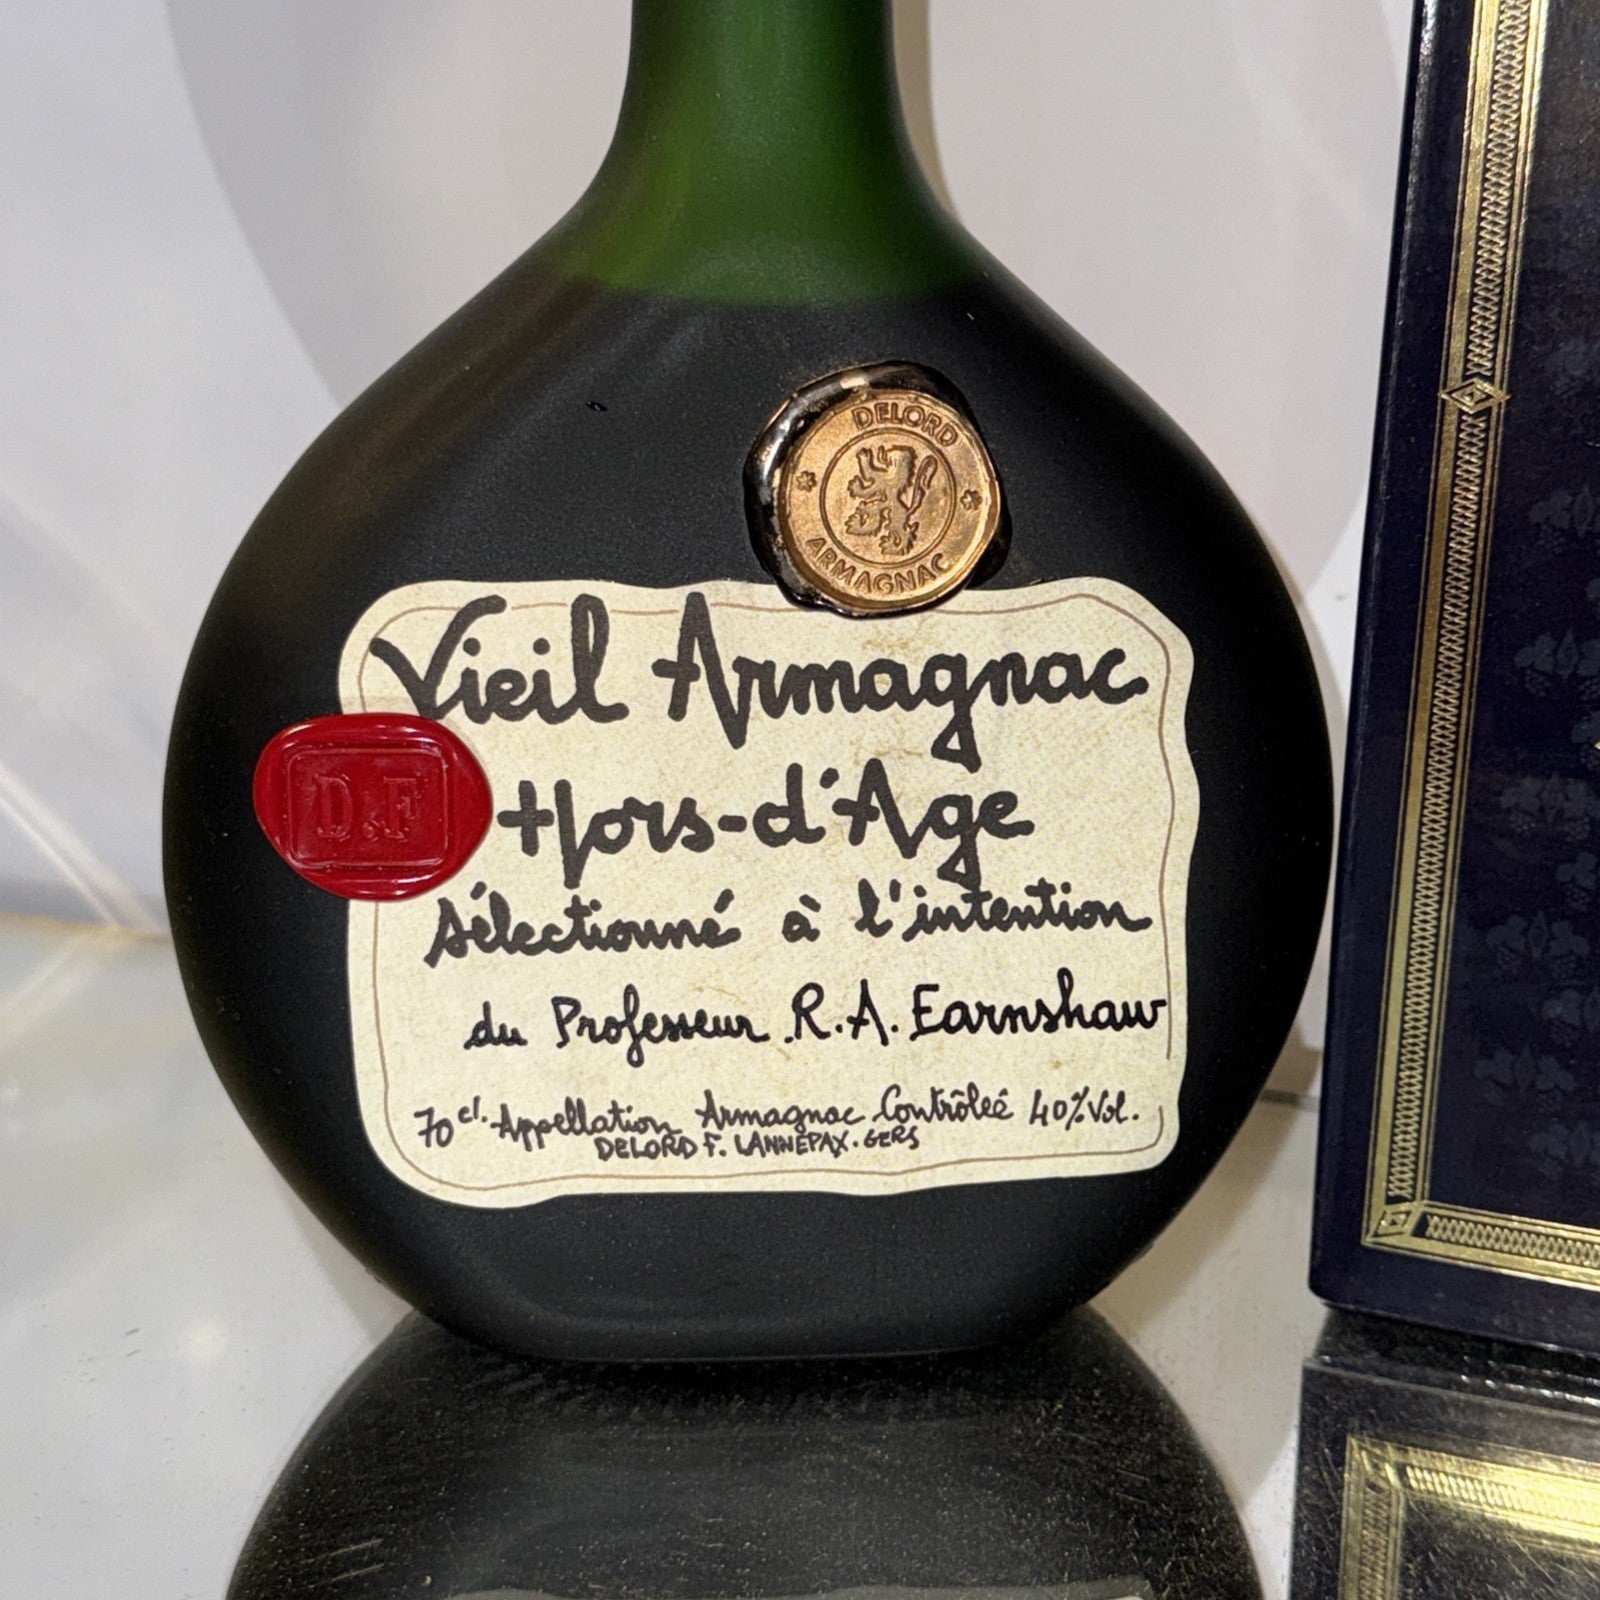 DELORD
ARMAGNAC
Vieil Armagnac
D.F
Hors-d'Age
sélectionné à l'intention
du Professeur R.A. Earnshaw
70 cl. Appellation Armagnac Contrôleé 40% Vol.
DELORD F. LANNEPAX. GERS